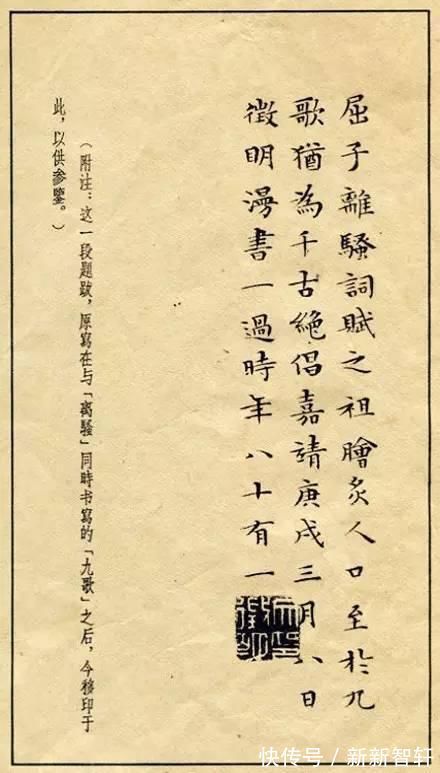 屈子離騷詞賦之祖膾炙人口至於九
歌猶為千古絶倡嘉靖庚戌三月八日
徵明漫書一過時年八十有一
（附注：这一段題跋，原寫在与「离騷」同時书寫的「九歌」之后，今移印于
此，以供参鑒。）
快传号 / 新新智轩